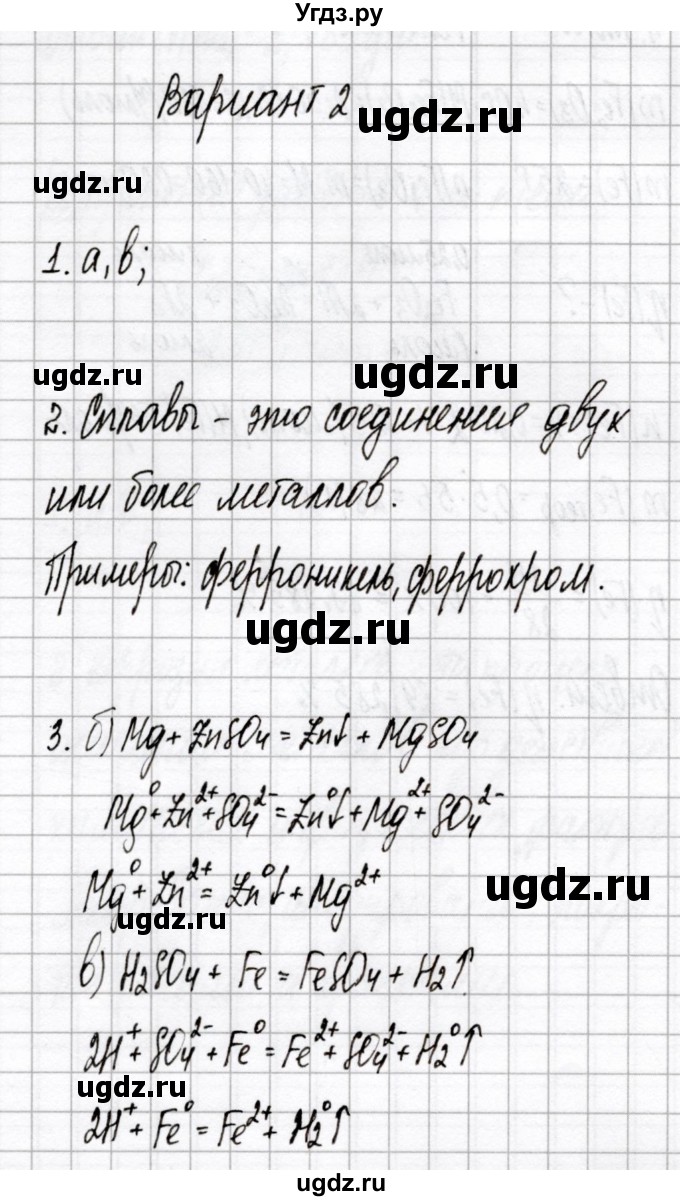 Угдз.ру
Вариант 2
ugdz.ru
ugdz.ru
1. а, в;
ugdz.ru
ugdz.ru
2. Сплавы - это соединения двух
или более металлов.
Примеры: ферроникель, феррохром.
ugdz.ru
3. б) Mg + ZnSO₄ = Zn↓ + MgSO₄
Mg⁰ + Zn²⁺ + SO₄²⁻ = Zn⁰↓ + Mg²⁺ + SO₄²⁻
Mg⁰ + Zn²⁺ = Zn⁰↓ + Mg²⁺
ugdz.ru
ugdz.ru
в) H₂SO₄ + Fe = FeSO₄ + H₂↑
2H⁺ + SO₄²⁻ + Fe⁰ = Fe²⁺ + SO₄²⁻ + H₂⁰↑
ugdz.ru
2H⁺ + Fe⁰ = Fe²⁺ + H₂⁰↑
ugdz.ru